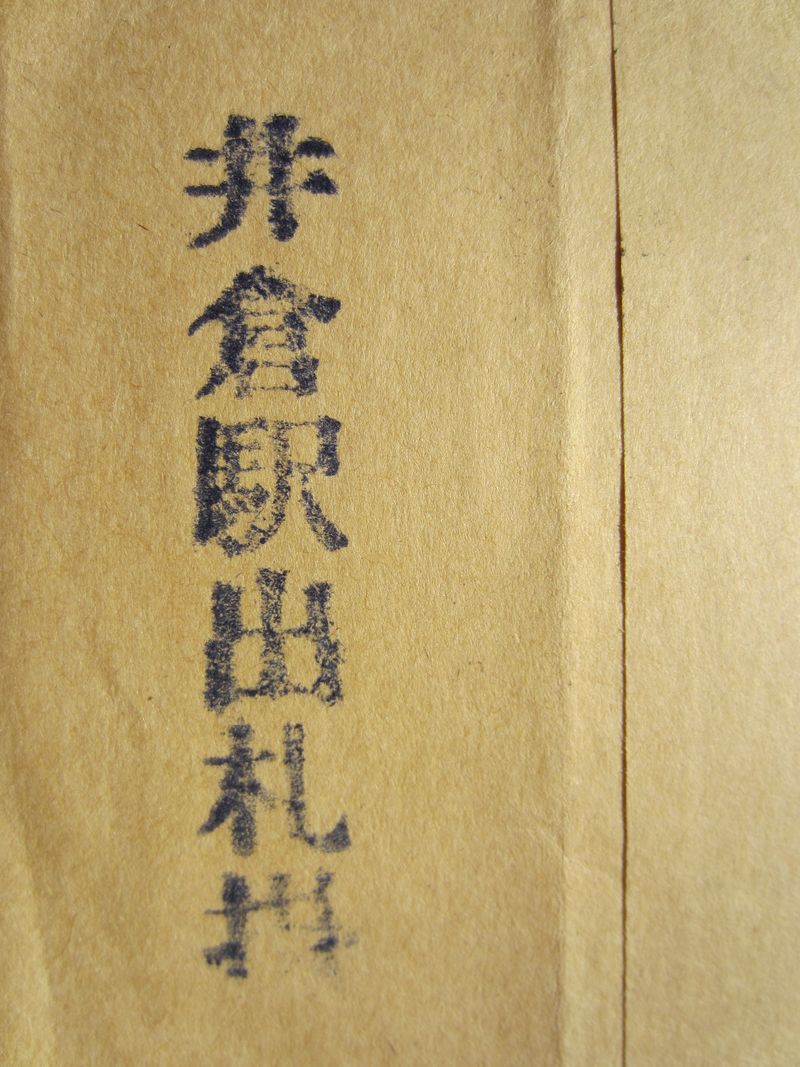 井倉駅出札掛